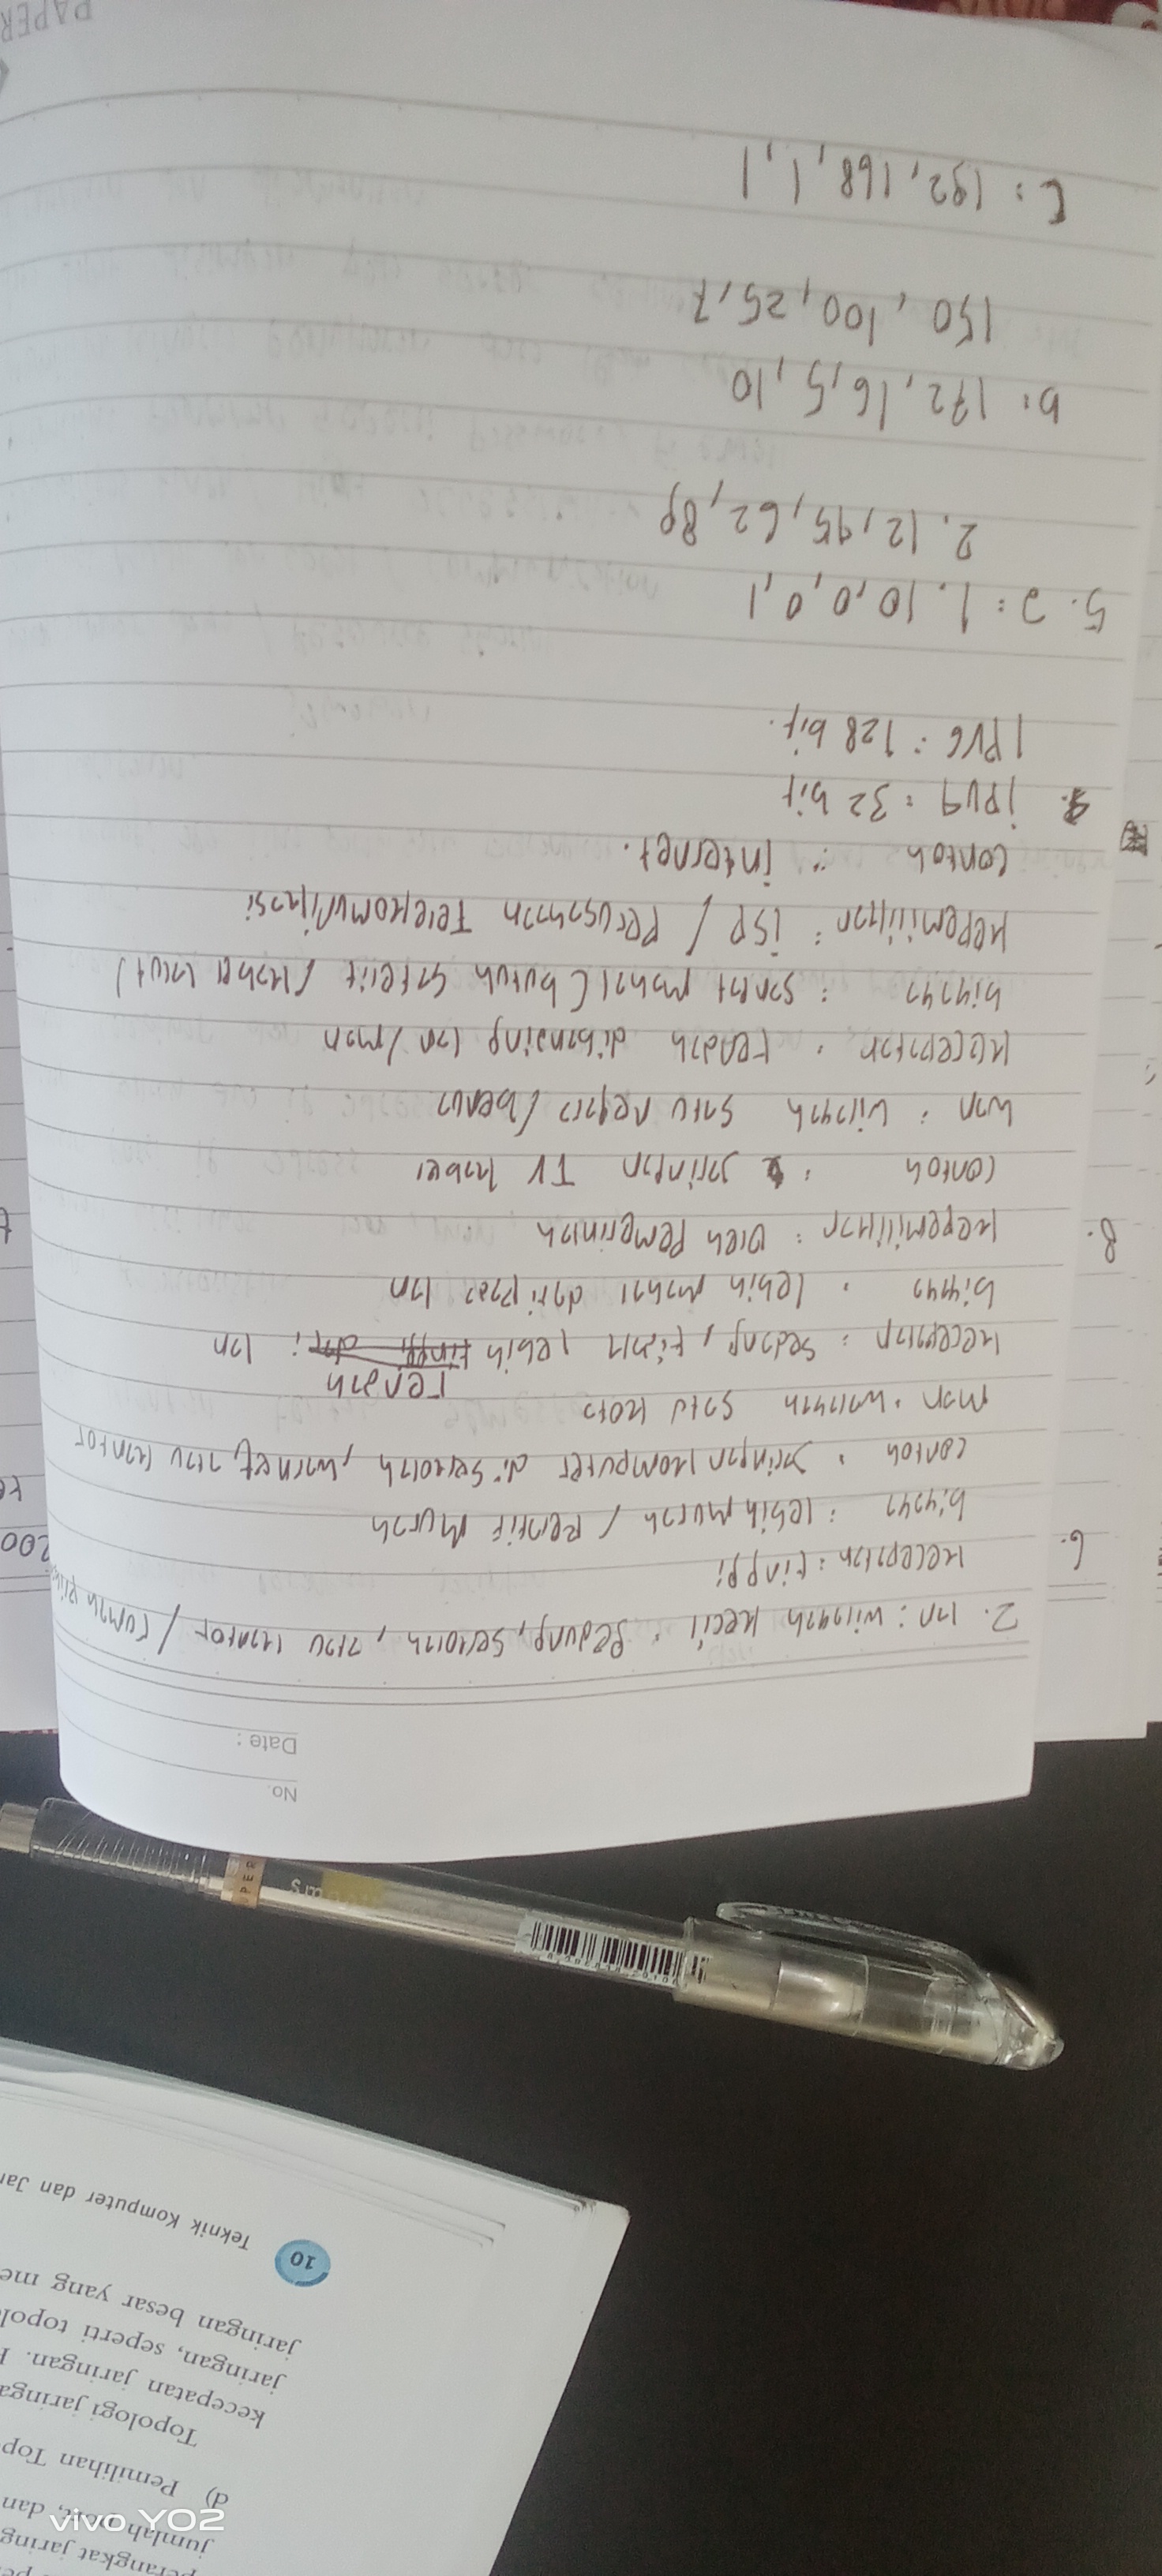 perangkat jaring
jumlah port, dan
vivo Y02
d) Pemilihan Top
Topologi jaringa
kecepatan jaringan.
jaringan, seperti topol
jaringan besar yang me
10 Teknik Komputer dan Jar
No.
Date :
2. lan : wilayah kecil : gedung, sekolah, atau kantor / rumah
kecepatan : tinggi
biyaya : lebih murah / relatif murah
contoh : jaringan komputer di sekolah, warnet, atau kantor
man : wilayah satu kota
rendah
kecepatan : sedang, tidak lebih tinggi dari lan
biyaya : lebih mahal daripada lan
kepemilikan : oleh pemerintah
contoh : jaringan TV kabel
wan : wilayah satu negara / benua
kecepatan : rendah dibanding lan / man
biyaya : sangat mahal ( butuh satelit / kabel laut )
kepemilikan : isp / perusahaan Telekomunikasi
contoh : internet.
4. ipv4 : 32 bit
IPV6 : 128 bit.
5. a : 1. 10,0,0,1
2. 12,45,62,89
b : 172,16,5,10
150,100,25,7
C : 192,168,1,1
6.
8.
200
PAPER